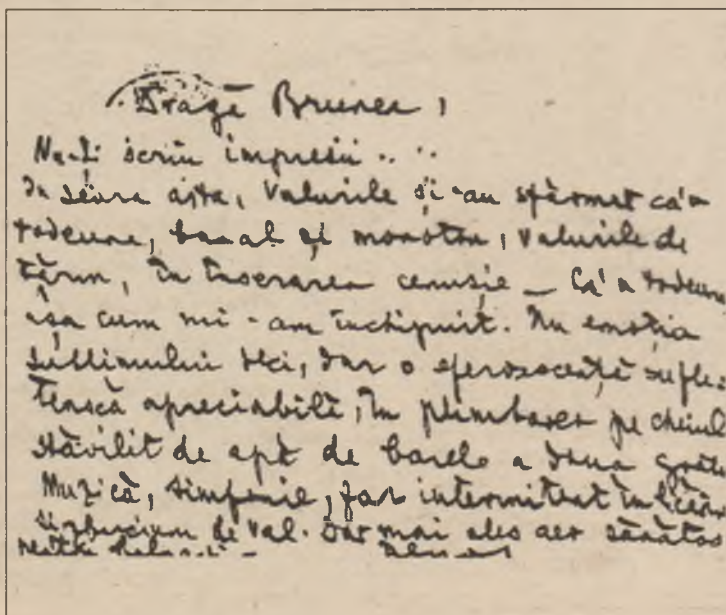 Dragă Brunea,
Nu-ți scriu impresii .. ..
În seara asta, valurile și-au sfărmat ca'n
todeuna, banal și monoton, valurile de
țărm, în înserarea cenușie — Ca'n todeuna
așa cum mi-am închipuit. Nu emoția
sublimului deci, dar o efervescență sufle-
tească apreciabilă, în plimbarea pe cheiul
stăvilit de apă de barele a doua
Muzică, simfonie, far intermitent în
zbucium de val. Dar mai ales aer sănătos